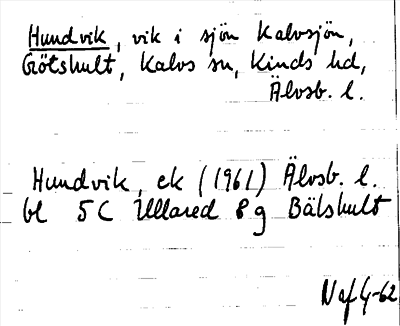 Hundvik, vik i sjön Kalvsjön,
Götshult, Kalvs sn, Kinds hd,
Älvsb. l.
Hundvik, ek (1961) Älvsb. l.
bl 5C Ullared 8g Bälshult